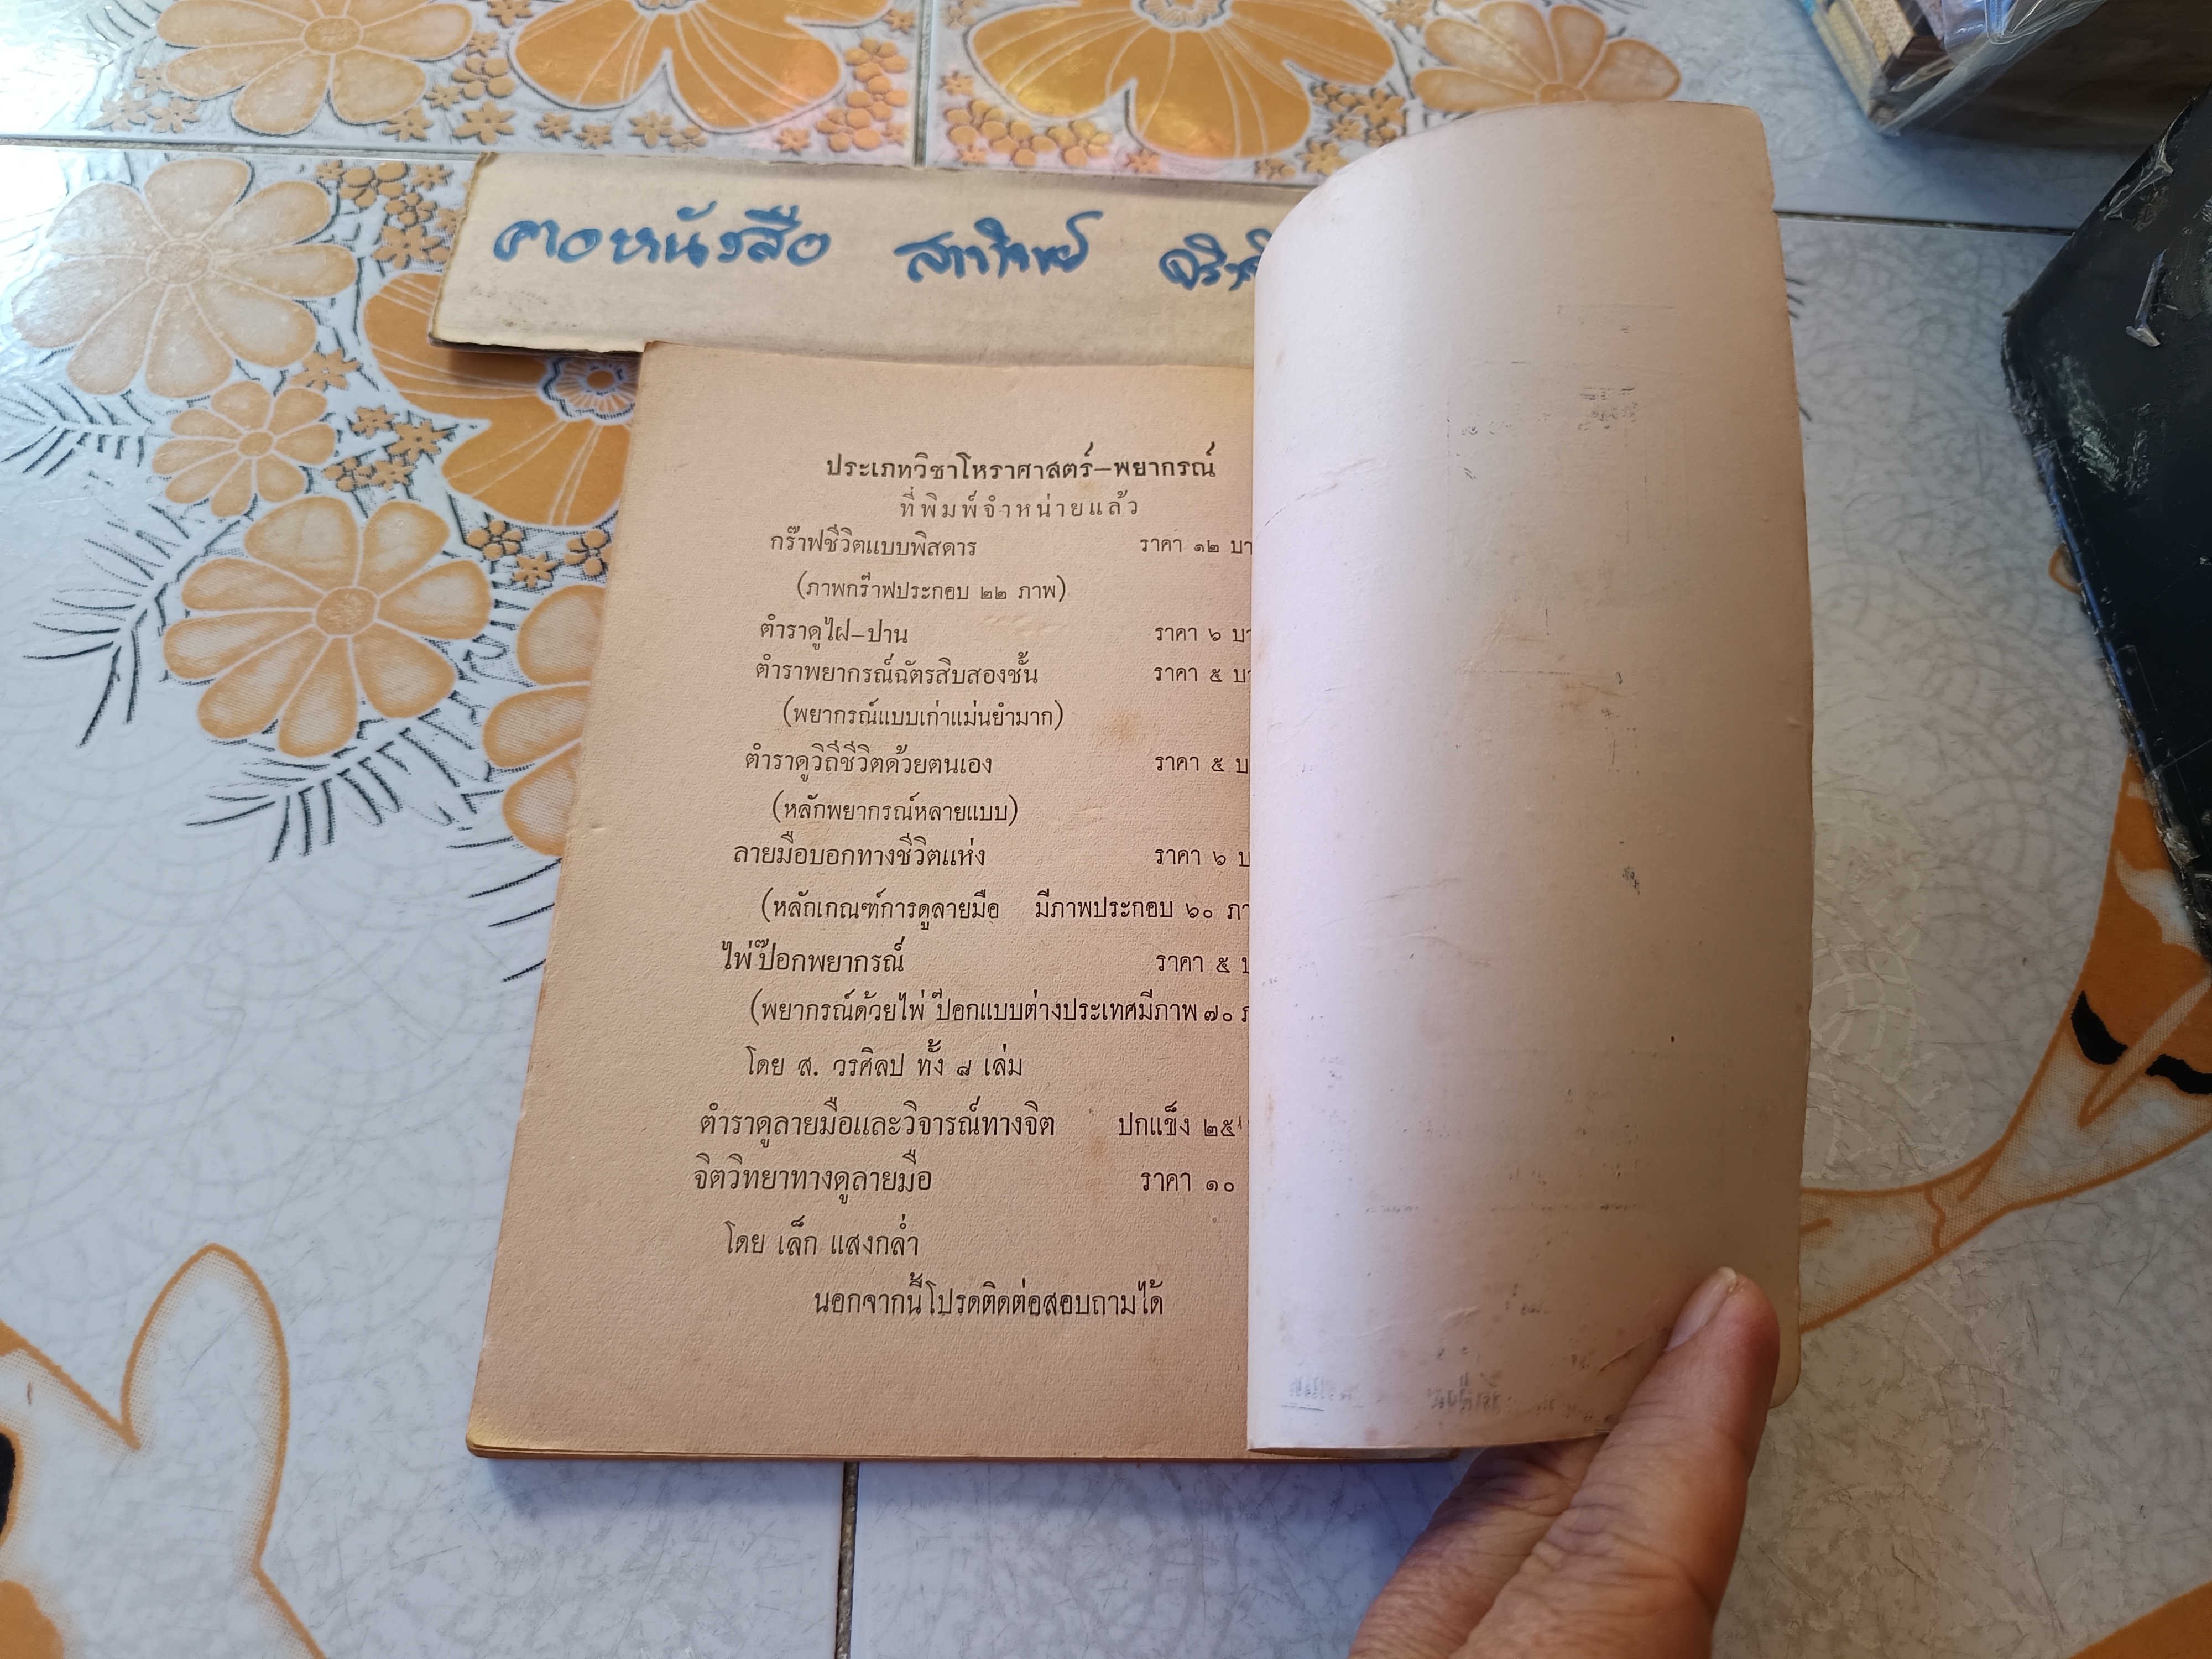 คอหนังสือ
ประเภทวิชาโหราศาสตร์–พยากรณ์
ที่พิมพ์จำหน่ายแล้ว
กร๊าฟชีวิตแบบพิสดาร ราคา ๑๒
(ภาพกร๊าฟประกอบ ๒๒ ภาพ)
ตำราดูไฝ–ปาน ราคา ๖
ตำราพยากรณ์ฉัตรสิบสองชั้น ราคา ๕
(พยากรณ์แบบเก่าแม่นยำมาก)
ตำราดูวิถีชีวิตด้วยตนเอง ราคา ๕
(หลักพยากรณ์หลายแบบ)
ลายมือบอกทางชีวิตแห่ง ราคา ๖
(หลักเกณฑ์การดูลายมือ มีภาพประกอบ ๖๐
ไพ่ป๊อกพยากรณ์ ราคา ๕
(พยากรณ์ด้วยไพ่ป๊อกแบบต่างประเทศมีภาพ ๗๐
โดย ส. วรศิลป ทั้ง ๘ เล่ม
ตำราดูลายมือและวิจารณ์ทางจิต ปกแข็ง ๒๕
จิตวิทยาทางดูลายมือ ราคา ๑๐
โดย เล็ก แสงกล่ำ
นอกจากนี้โปรดติดต่อสอบถามได้